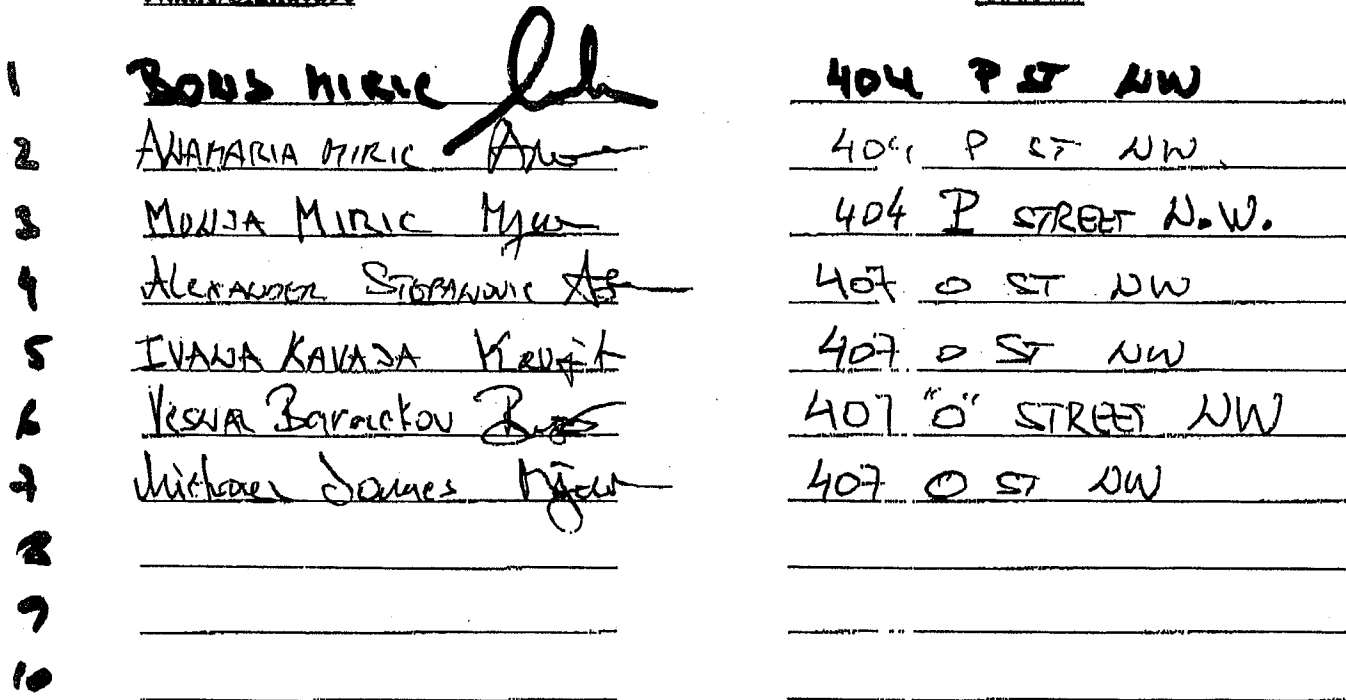 1 BORIS MIRIC 404 P ST NW
2 ANAMARIA MIRIC 404 P ST NW
3 MONJA MIRIC 404 P STREET N.W.
4 ALEXANDER STEPANOVIC 407 O ST NW
5 IVANA KAVAJA 407 O ST NW
6 VESNA 407 "O" STREET NW
7 Michael James 407 O ST NW
8
9
10